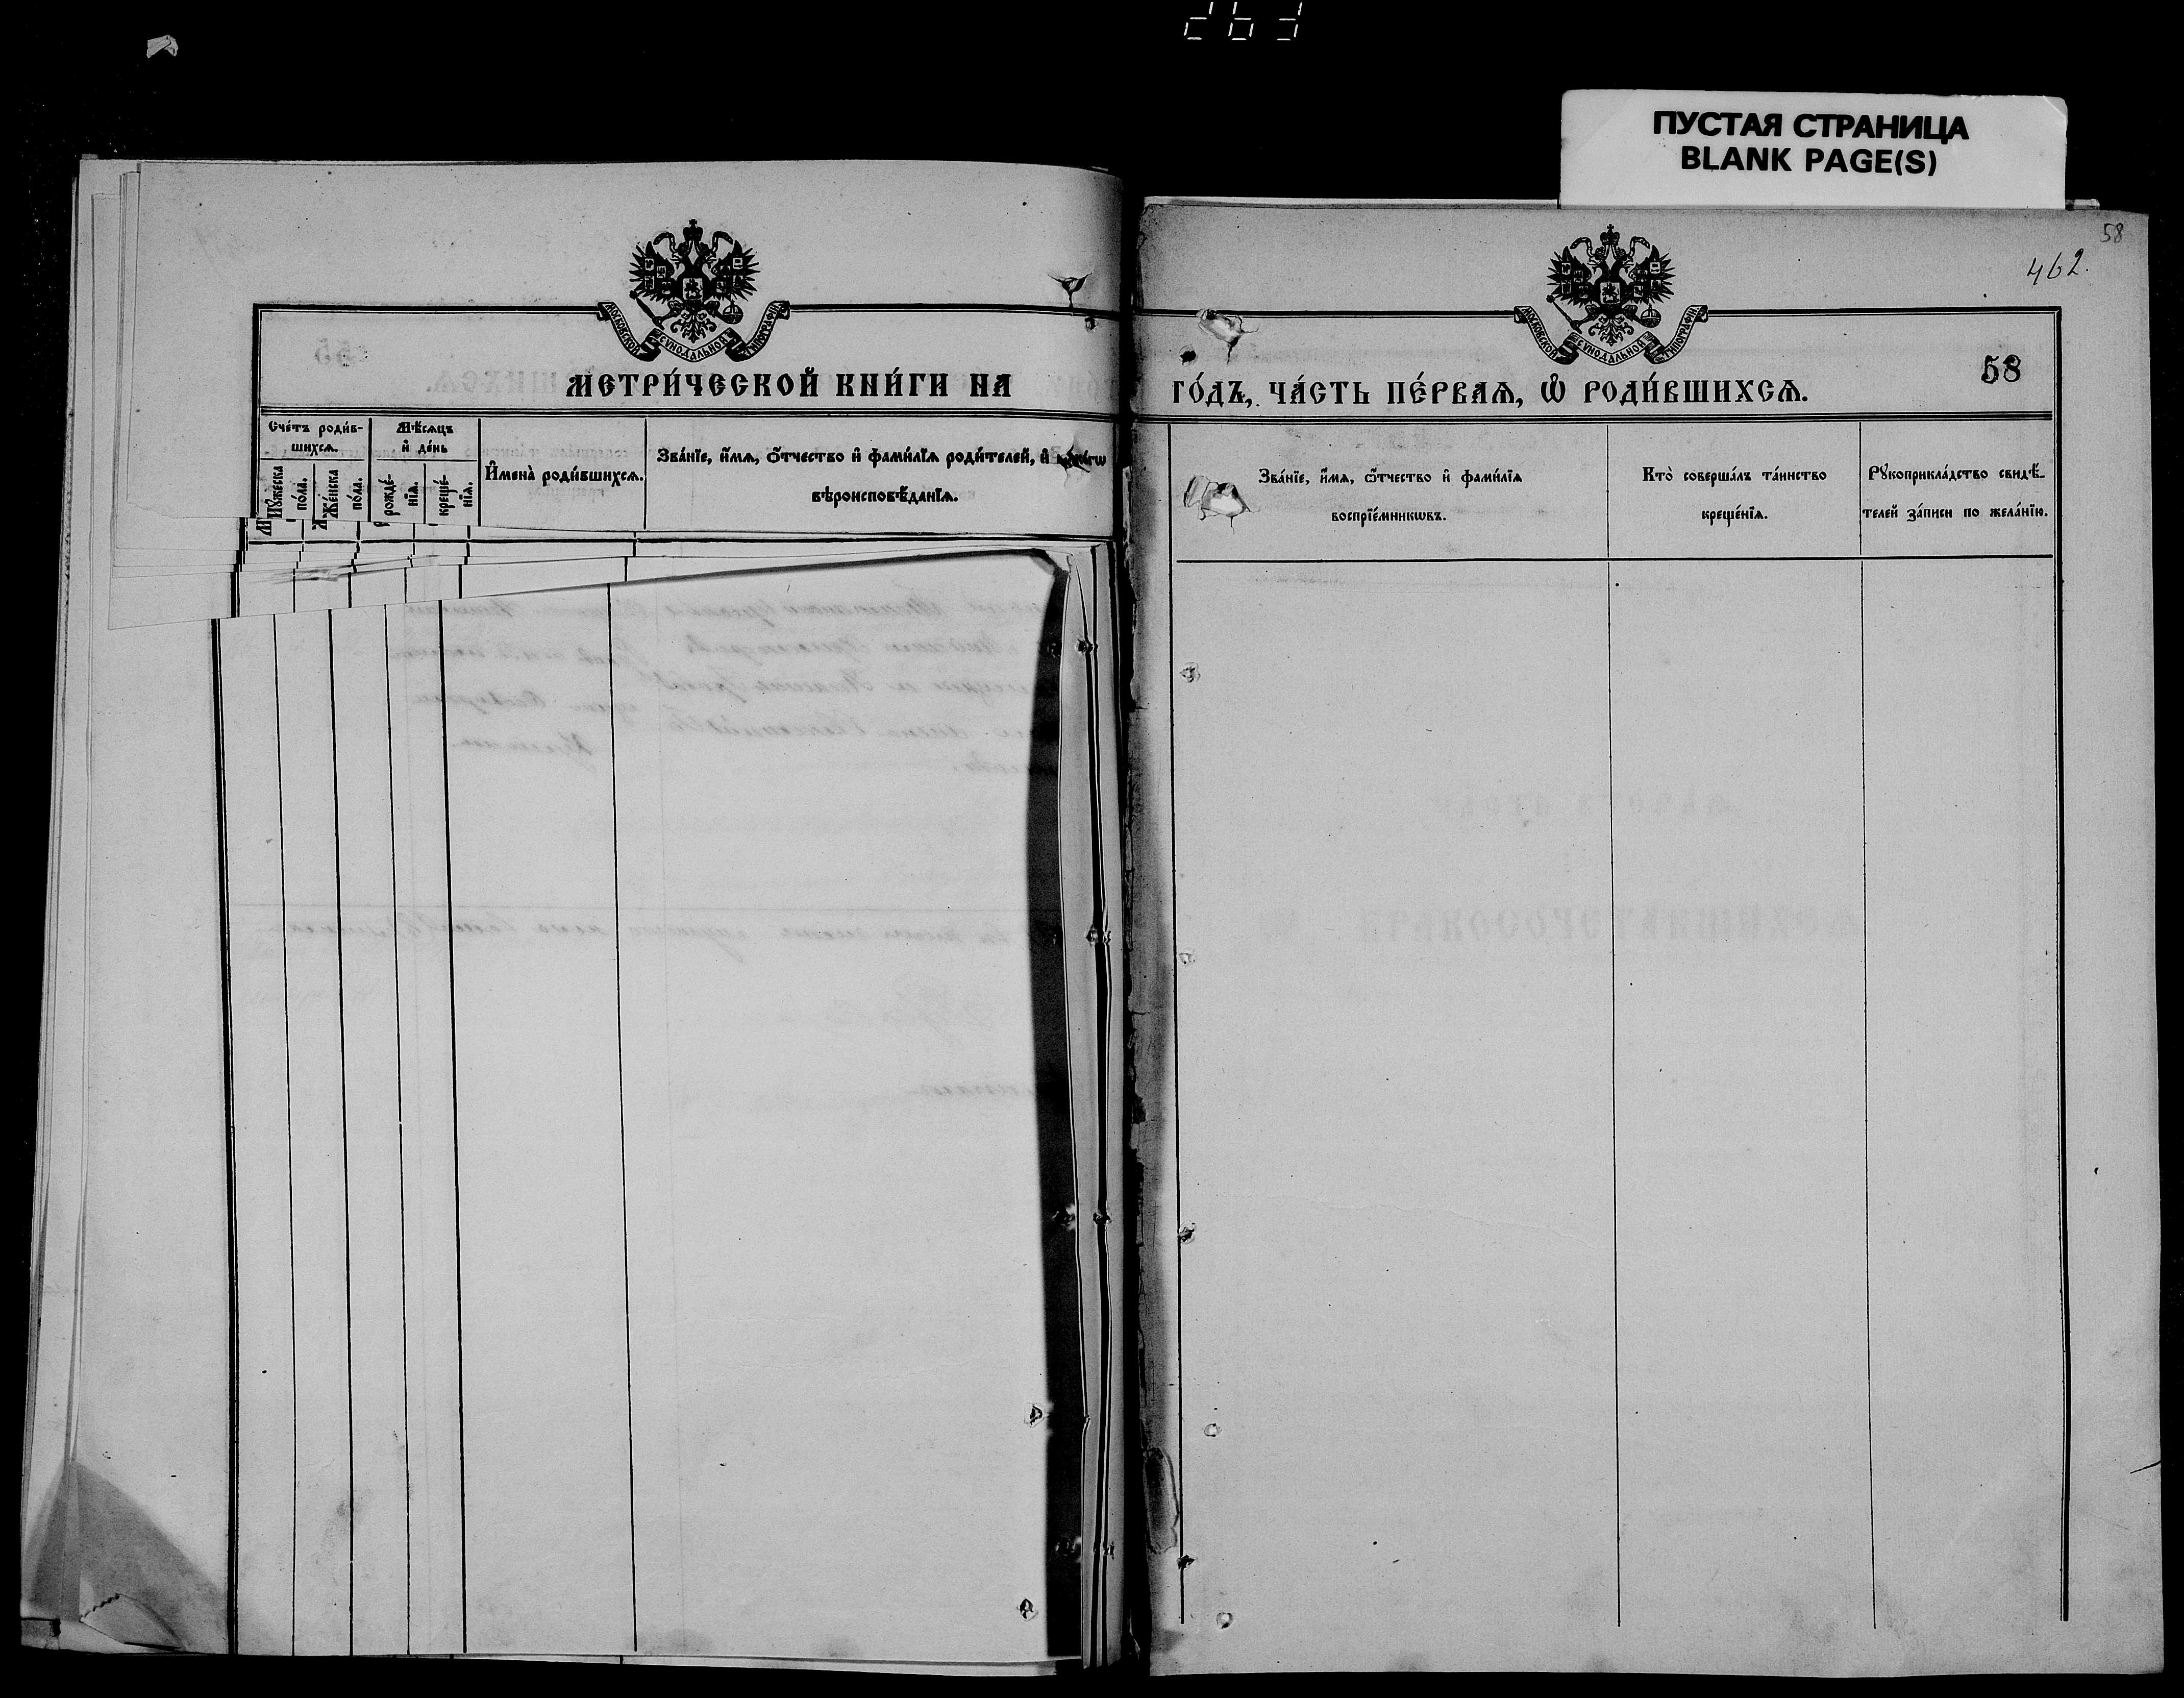 263
ПУСТАЯ СТРАНИЦА
BLANK PAGE(S)
58
462.
МОСКОВСКОЙ СѴНОДАЛЬНОЙ ТИПОГРАФІИ
МОСКОВСКОЙ СѴНОДАЛЬНОЙ ТИПОГРАФІИ
58
МЕТРИ́ЧЕСКОЙ КНИ́ГИ НА
ГО́ДЪ, ЧА́СТЬ ПЕ́РВАѦ, Ѽ РОДИ́ВШИХСѦ.
Сче́тъ роди́в-
шихсѧ.
Мꙋ́жеска по́ла.
Же́нска по́ла.
Мѣ́сѧцъ
и҆ де́нь
рожде́-нїѧ.
креще́-нїѧ.
И҆мена̀ роди́вшихсѧ.
Зва́нїе, и҆́мѧ, ѻ҆́тчество и҆ фами́лїѧ роди́телей, и҆
вѣроисповѣ́данїѧ.
Зва́нїе, и҆́мѧ, ѻ҆́тчество и҆ фами́лїѧ
воспрїе́мникѡвъ.
Кто̀ соверша́лъ та́инство
креще́нїѧ.
Рꙋкоприкла́дство свидѣ́-
телей за́писи по жела́нїю.